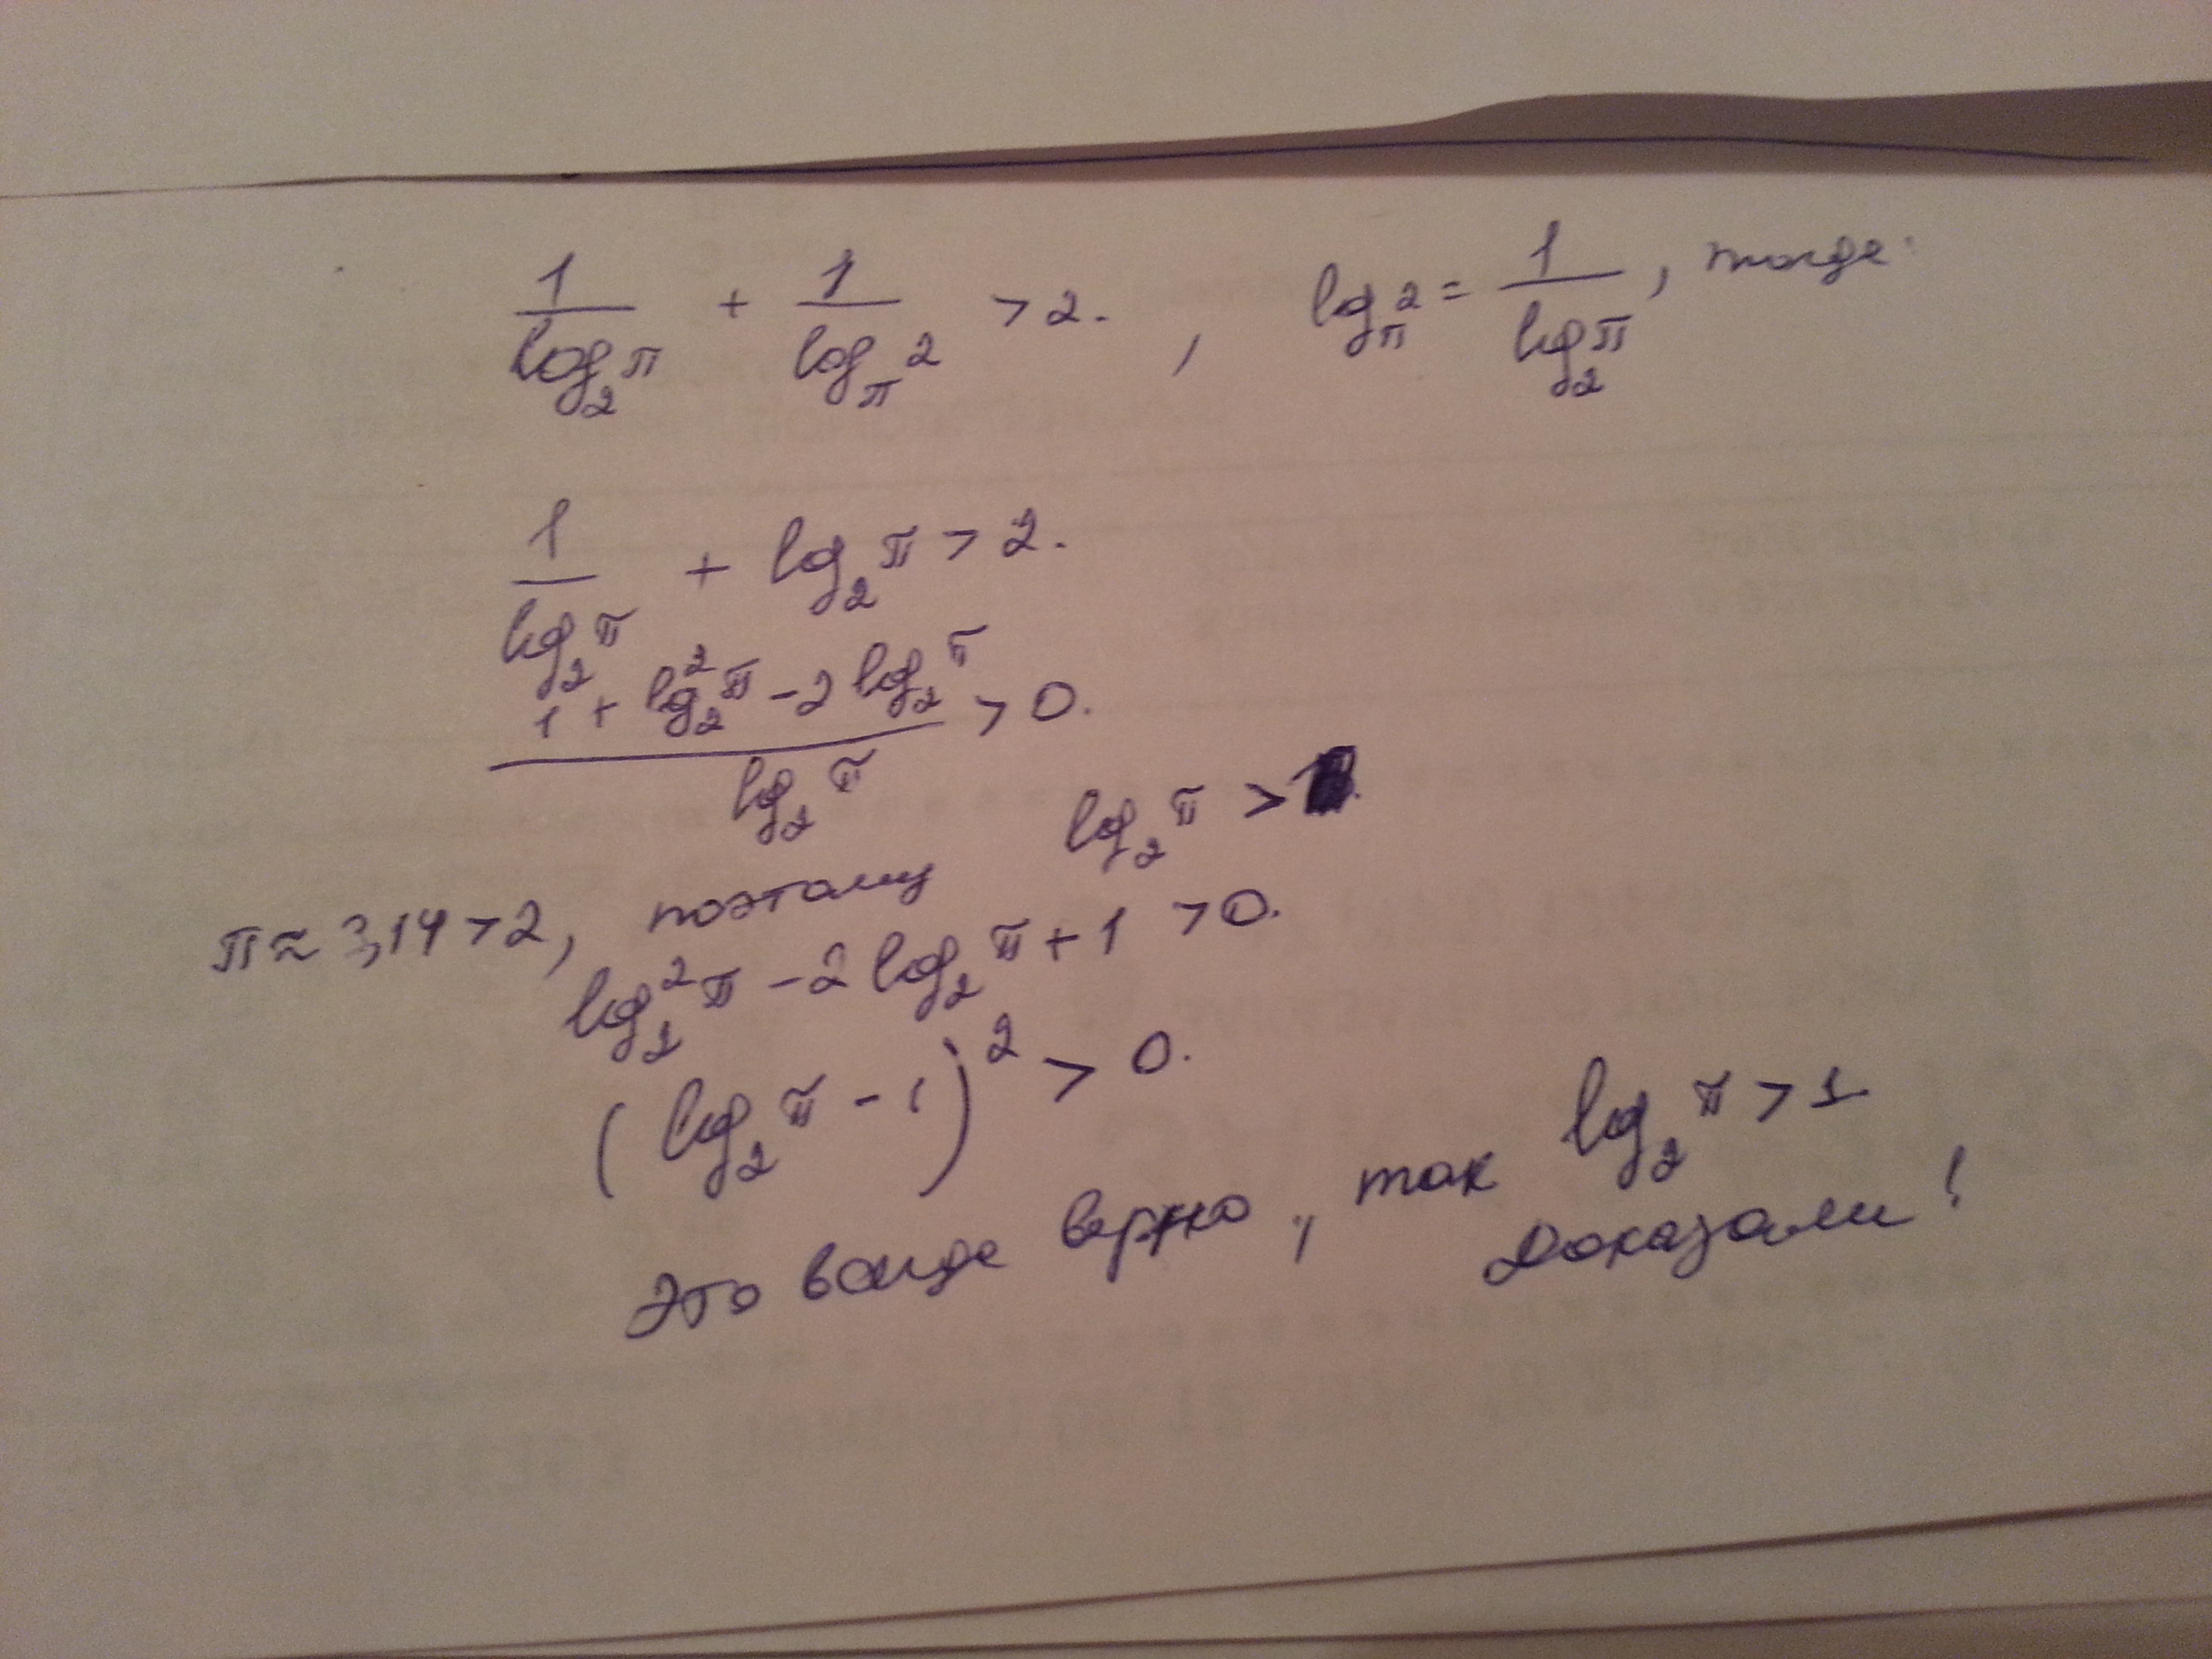 1/log₂π + 1/log_π 2 > 2. , log_π 2 = 1/log₂π, тогда:
1/log₂π + log₂π > 2.
(1 + log₂²π - 2 log₂π)/log₂π > 0.
π ≈ 3,14 > 2, поэтому log₂π >
log₂²π - 2 log₂π + 1 > 0.
(log₂π - 1)² > 0.
Это всегда верно, так log₂π > 1
Доказали!